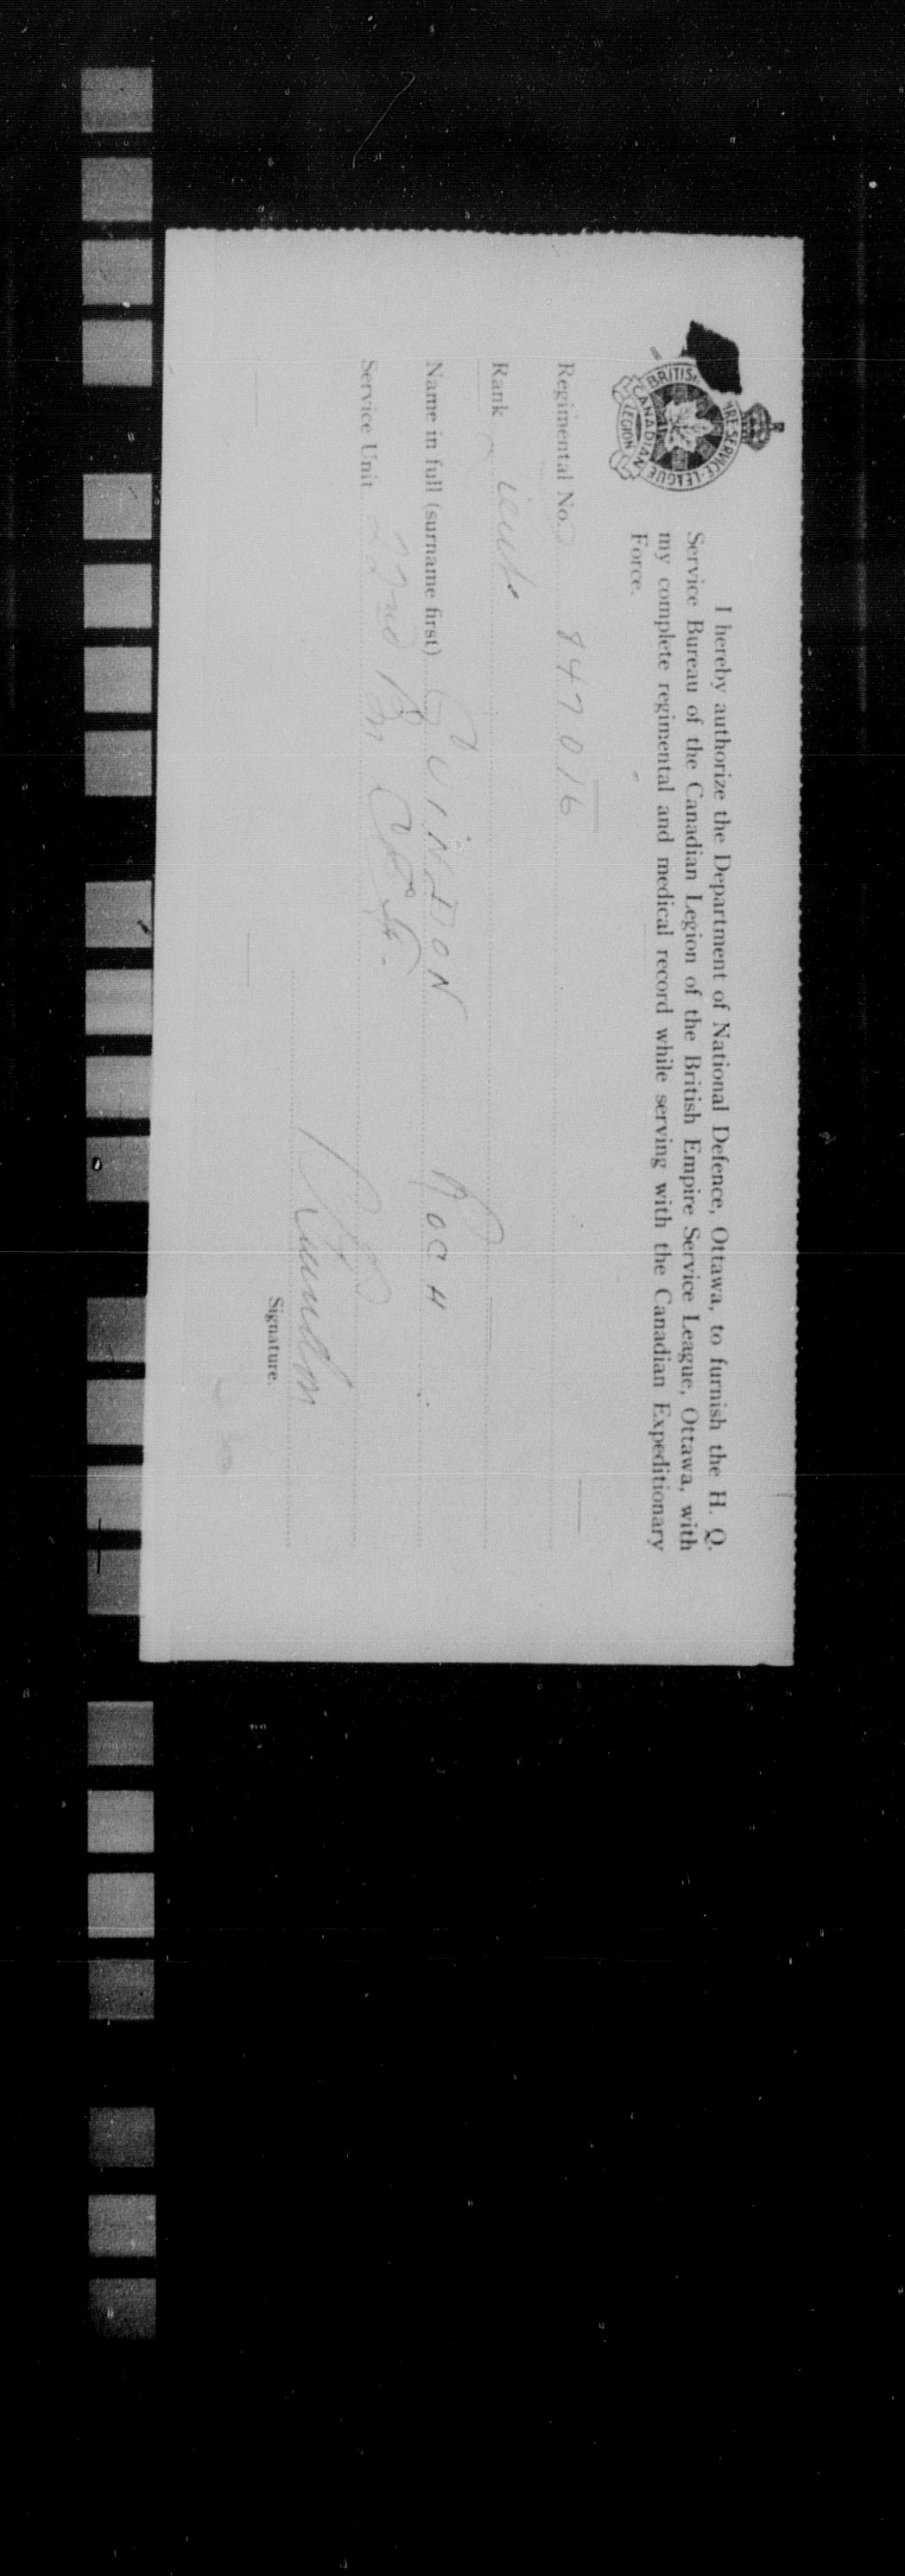 BRITISH EMPIRE SERVICE LEAGUE
CANADIAN
LEGION
I hereby authorize the Department of National Defence, Ottawa, to furnish the H. Q.
Service Bureau of the Canadian Legion of the British Empire Service League, Ottawa, with
my complete regimental and medical record while serving with the Canadian Expeditionary
Force.
Regimental No. 847016
Rank Lieut.
Name in full (surname first) QUINDON ROCH
Service Unit 22nd Bn C.E.F.
Signature.